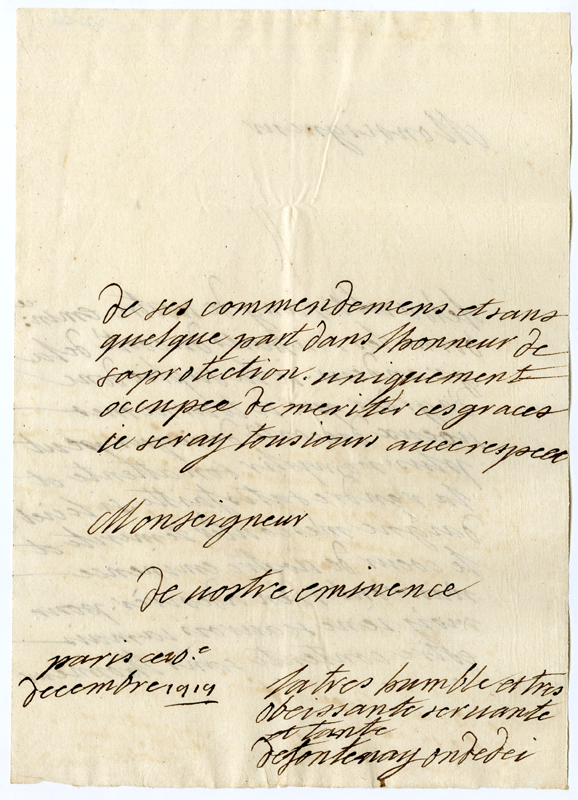 de ses commendemens et sans
quelque part dans lhonneur de
sa protection. uniquement
occupée de meriter ces graces
ie seray tousiours avec respect
Monseigneur
de vostre eminence
paris ce
decembre 1919
la tres humble et tres
obeissante servante
et tante
defontenay ondedei